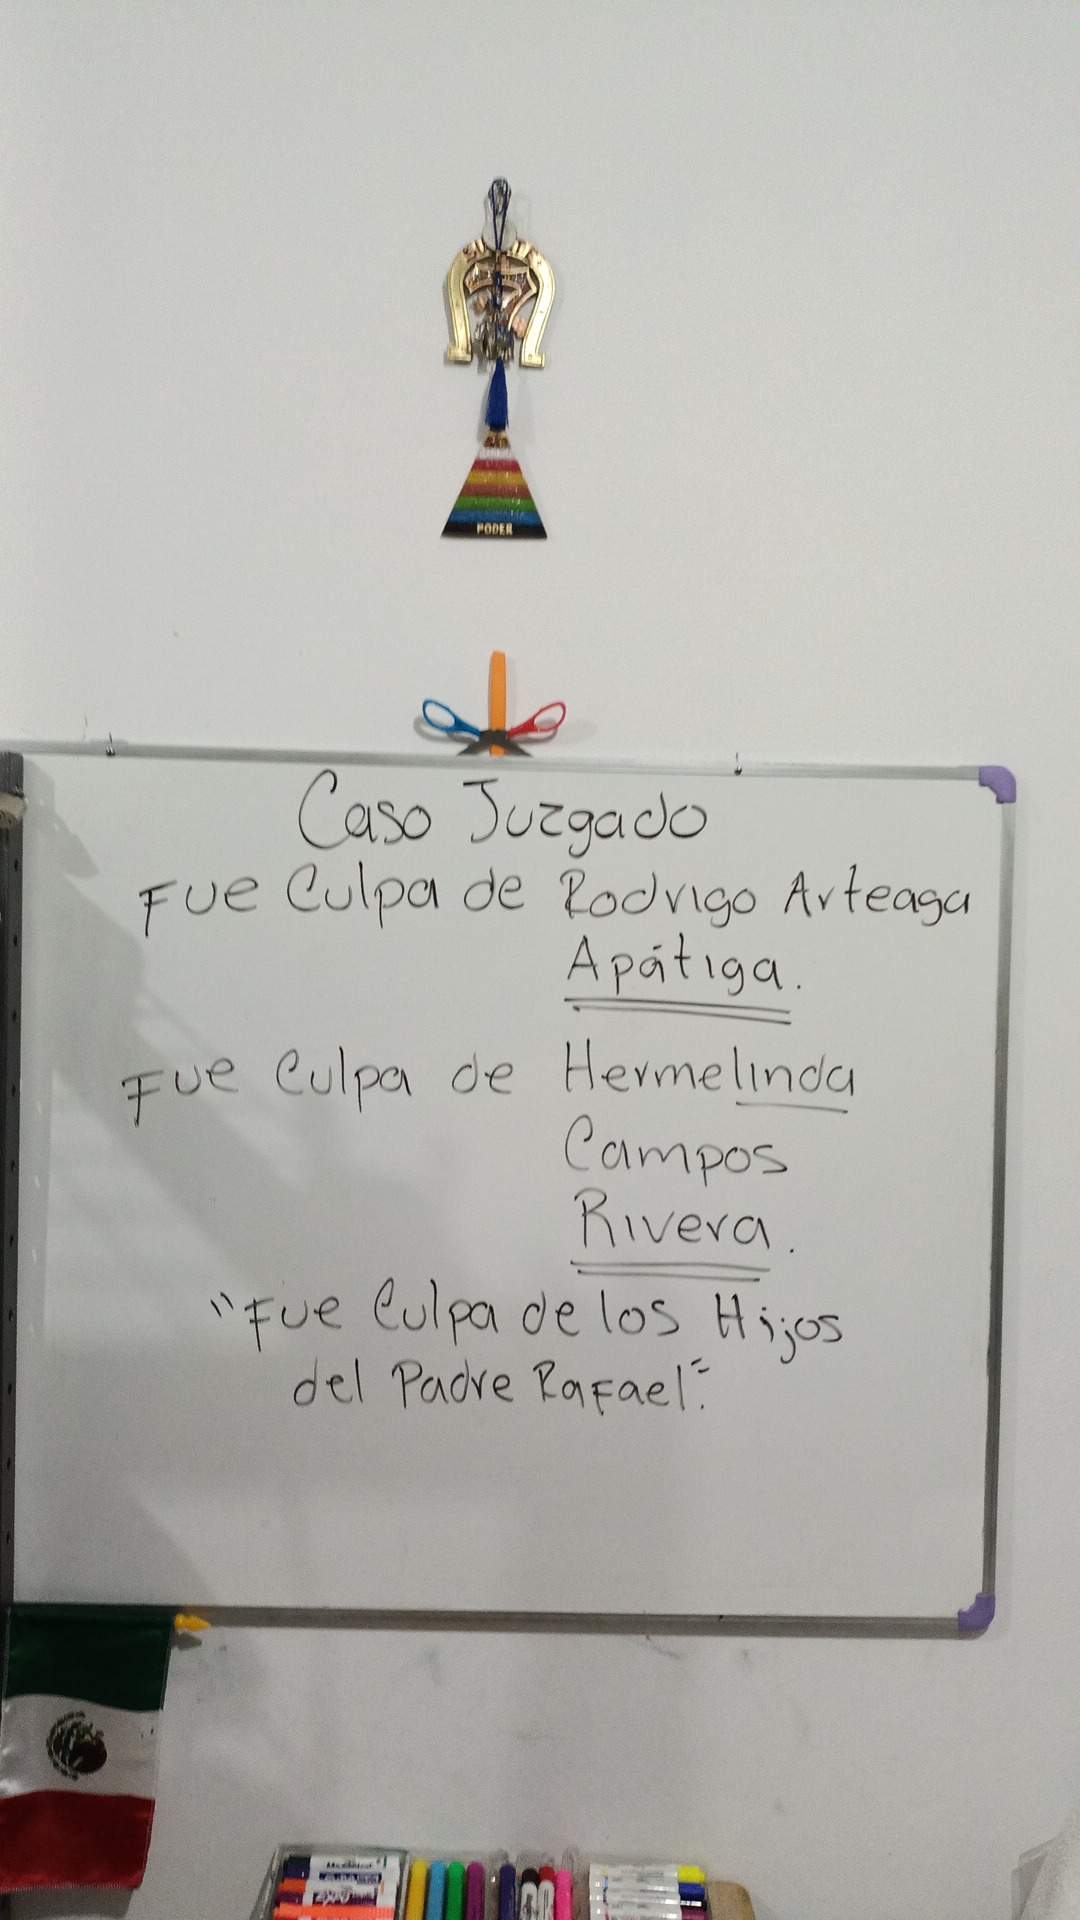 PODER
Caso Juzgado
Fue Culpa de Rodrigo Arteaga
Apátiga.
Fue Culpa de Hermelinda
Campos
Rivera.
"Fue Culpa de los Hijos
del Padre Rafael".